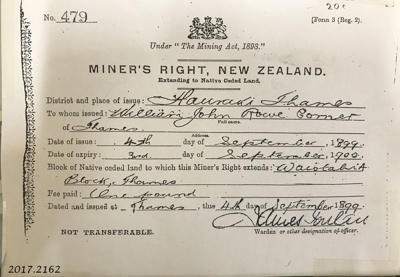 20c
No. 479
[Form 3 (Reg. 2).
Under "The Mining Act, 1898."
MINER'S RIGHT, NEW ZEALAND.
Extending to Native Ceded Land.
District and place of issue: Hauraki Thames
To whom issued: William John Rowe Corner
Full name.
of Thames
Address.
Date of issue: 4th day of September, 1899.
Date of expiry: 3rd day of September, 1900.
Block of Native ceded land to which this Miner's Right extends: Waiotahi
Block, Thames
Fee paid: One pound
Dated and issued at Thames, this 4th day of September 1899.
Warden or other designation of officer.
NOT TRANSFERABLE.
2017.2162